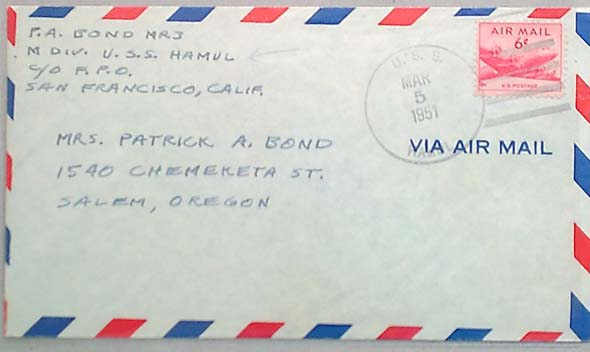 P.A. BOND MR3
M DIV. U.S.S. HAMUL
C/O F.P.O.
SAN FRANCISCO, CALIF.
AIR MAIL
6¢
U.S. POSTAGE
U.S.S.
MAR
5
1951
HAMUL
VIA AIR MAIL
MRS. PATRICK A. BOND
1540 CHEMEKETA ST.
SALEM, OREGON